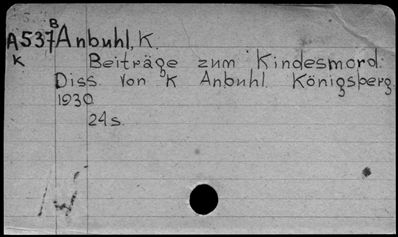 B
A537 Anbuhl, K.
K Beiträge zum Kindesmord.
Diss. von K Anbuhl. Königsberg
1930
24s.